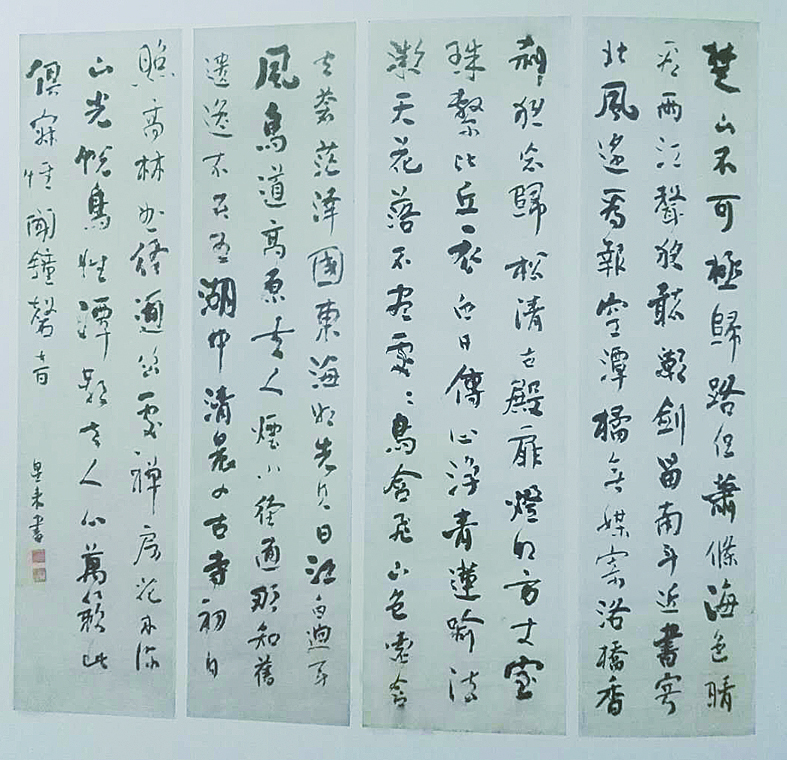 楚山不可極歸路但蕭條海色晴
看雨江聲夜聽潮劍留南斗近書寄
北風遙為報空潭橘無媒寄洛橋香
刹夜忘歸松清古殿扉燈明方丈室
珠繫比丘衣白日傳心淨青蓮喻法
微天花落不盡處〻鳥含飛山色遠含
空蒼茫澤國東海明先見日江白迥聞
風鳥道高原去人煙小徑通那知舊
遺逸不在五湖中清晨入古寺初日
照高林曲徑通幽處禪房花木深
山光悅鳥性潭影空人心萬籟此
俱寂惟聞鐘磬音
星来書